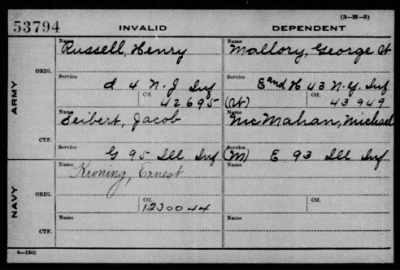 53794 INVALID DEPENDENT (3-H-5)
Name Russell, Henry Name Mallory, George
ORIG. Service Service
d 4 N. J Inf E and H 43 N.Y. Inf
Ctf. 42695 (Wt) Ctf. 43949
ARMY
Name Seibert, Jacob Name McMahan, Michael
CTF.
Service G 95 Ill Inf Service (M) E 93 Ill Inf
Name Kroning, Ernest Name
ORIG.
Ctf. 1230044 Ctf.
NAVY
Name Name
CTF.